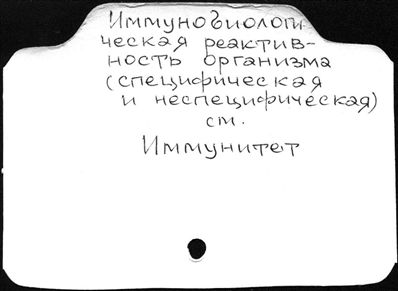 Иммунобиологи-
ческая реактив-
ность организма
(специфическая
и неспецифическая)
см.
Иммунитет